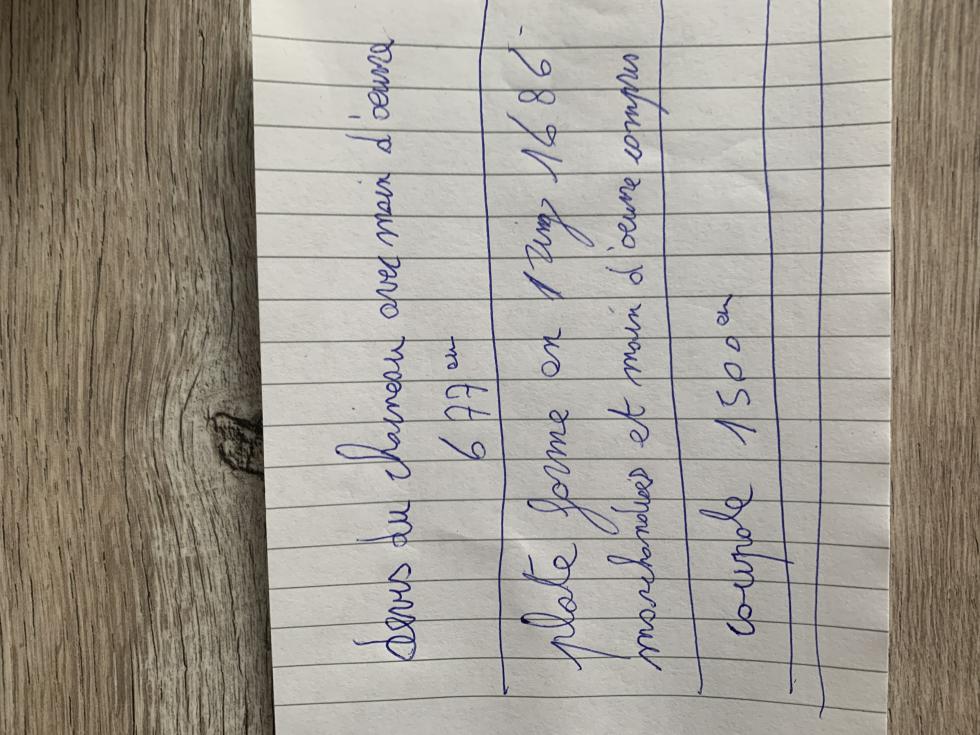 devis du chaineau avec main d'oeuvre
677 eu
plate forme en zing 1686
marchandises et main d'oeuvre compris
coupole 1500 eu